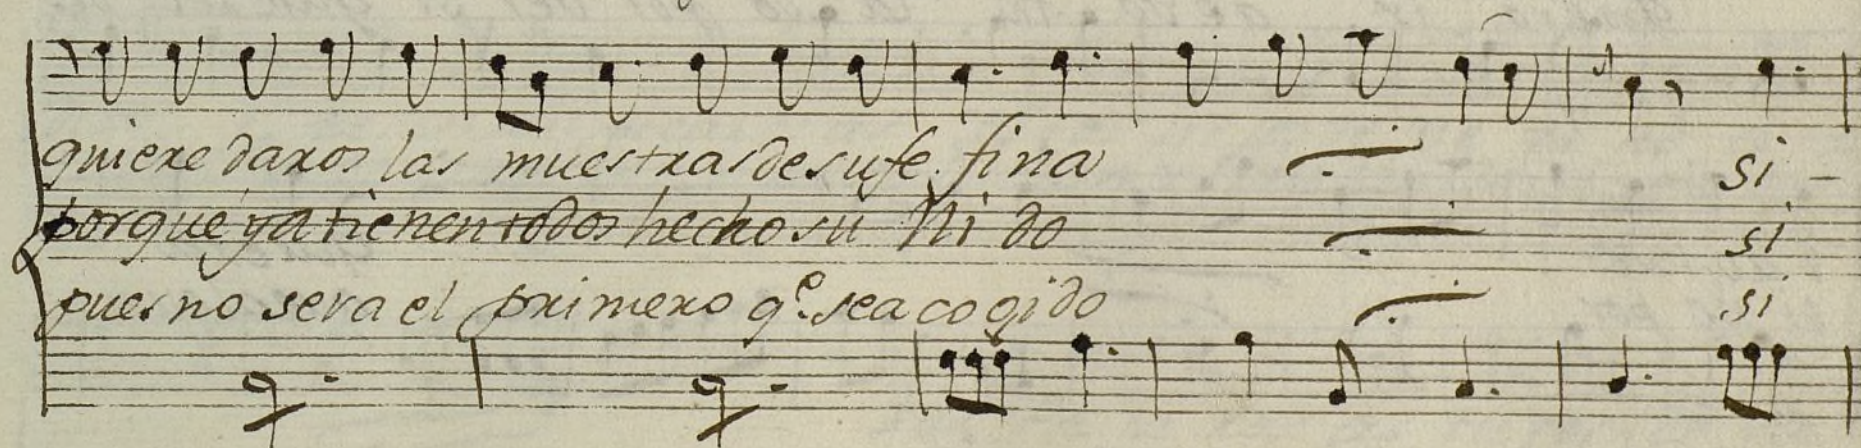 quiere daros las muestras de su fe fina si -
porque ya tienen todos hecho su Nido si
pues no sera el primero q.e sea cogido si